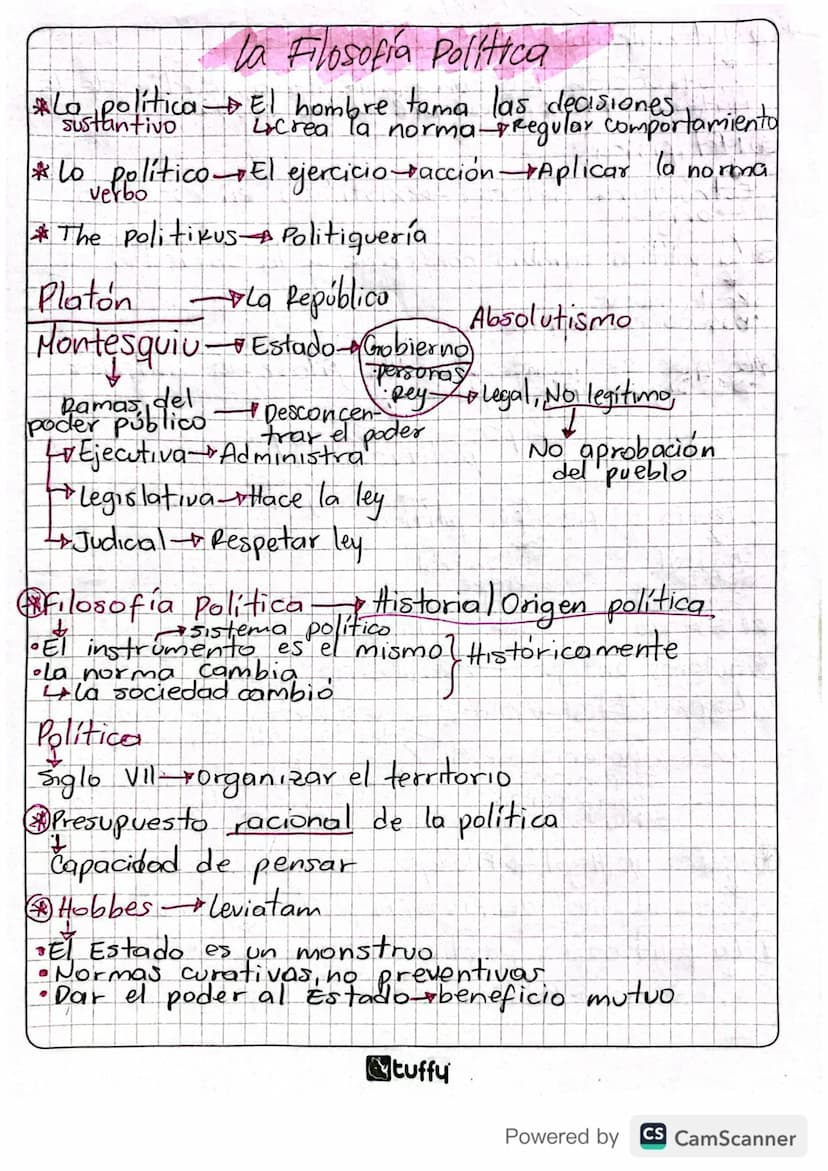 La Filosofía Política
* La política → El hombre toma las decisiones
sustantivo ↳ crea la norma → Regular comportamiento
* Lo político → El ejercicio → acción → Aplicar la norma
verbo
* The politikus → Politiquería
Platón → La República
Absolutismo
Montesquiu → Estado → Gobierno
personas
• Rey → Legal, No legítimo,
↓
Ramas del
poder público → Desconcen-
trar el poder
No aprobación
del pueblo
↳ Ejecutiva → Administra
→ Legislativa → Hace la ley
↳ Judical → Respetar ley
* Filosofía Política → Historia / Origen política
→ sistema político
• El instrumento es el mismo } Históricamente
• La norma cambia
↳ La sociedad cambió
Política
↓
Siglo VII → organizar el territorio
* Presupuesto racional de la política
↓
Capacidad de pensar
* Hobbes → Leviatam
↓
• El Estado es un monstruo
• Normas curativas, no preventivas
• Dar el poder al Estado → beneficio mutuo
tuffy
Powered by CS CamScanner